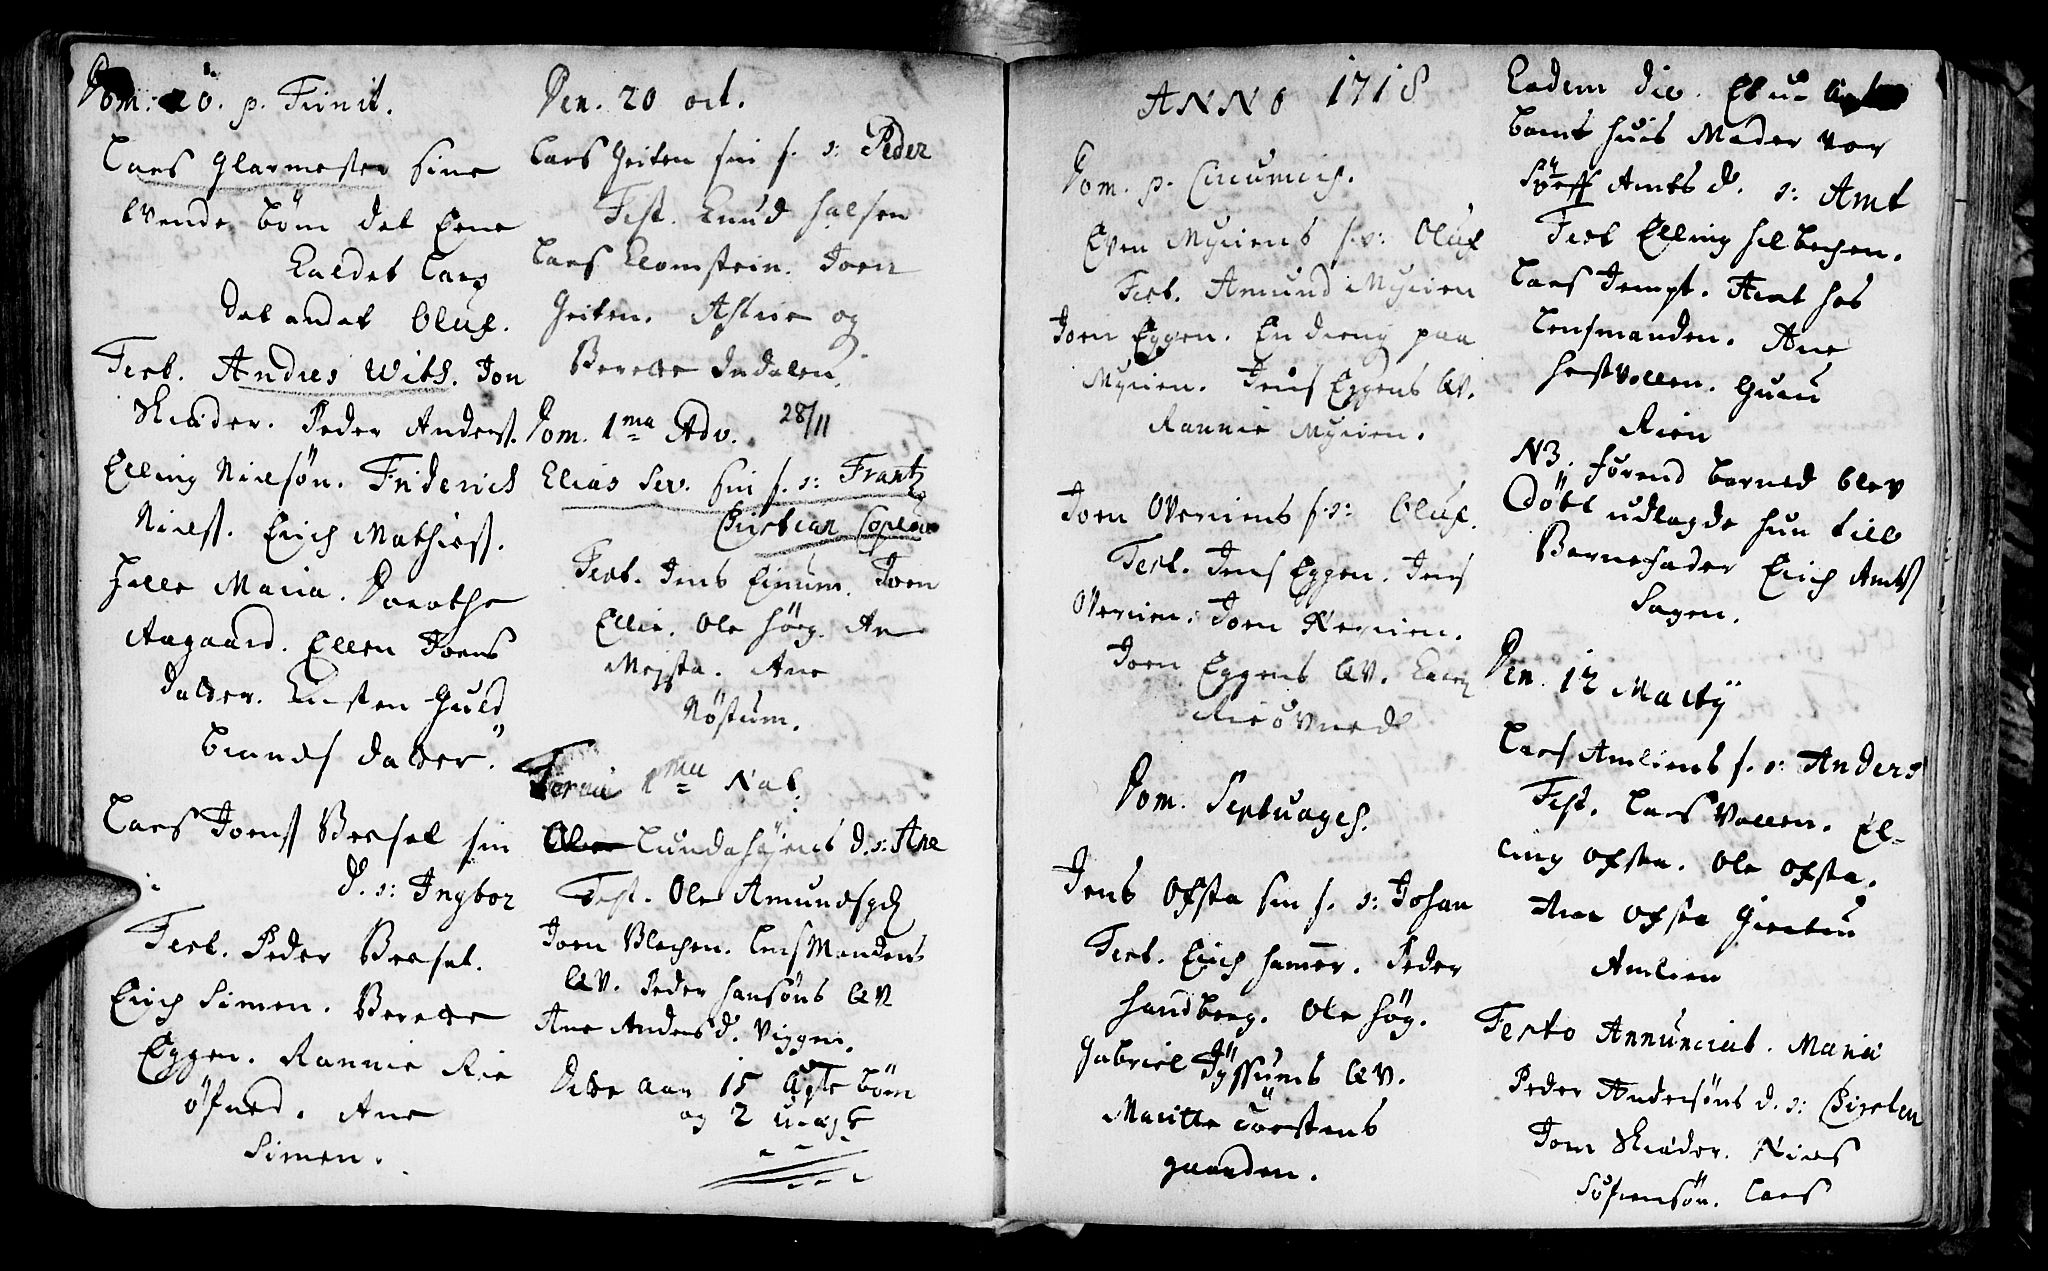 Dom: 20. p. Trinit.
Lars Glarmester sine
tvende börn det Eene
kaldet Lars
det andet Oluf.
Test. Andres With. Jon
Skræder. Peder Anderss.
Elling Nielsön. Friderich
Nielss. Erich Mathiess.
Helle Maria. Dorothe
Aagaard. Ellen Joens
datter. Kirsten Guld
brands datter.
Lars Joenss Bersel sin
D. n: Ingbor
Test. Peder Bersel.
Erich Simen. Berette
Eggen. Rannie Rie
öfned. Ane
Simen.
Den. 20 oct.
Lars Geiten sin s. n: Peder
Test. Knud Halsen
Lars Klomstein. Joen
Geiten. Astrie og
Berette Indalen.
Dom. 1ma Adv. 28/11
Elias sin s. n: Frantz
Christian
Test. Jens Einum. Joen
Ellie. Ole Hög. An
Mossta. Ane
Nöstum.
Feriae 1ma Nat.
Lundahöjens D. n: Ane
Test. Ole Amunds
Joen Blechen. LensMandens
QV. Peder Hansöns QV
Ane Anders D. Viggen.
Dette aar 15 Ægte börn
og 2 uægte
ANNO 1718
Dom. p. Circumcis.
Even Myriens s. n: Oluf
Test. Amund Myrien
Joen Eggen. En dreng paa
Myrien. Jens Eggens QV.
Rannie Myrien.
Joen Overiens s. n: Oluf.
Test. Jens Eggen. Jens
Overien. Joen Nerrien.
Joen Eggens QV. Karen
Rieövned
Dom. Septuages.
Jens Ofsta sin s. n: Johan
Test. Erich Hamer. Peder
Sandberg. Ole Hög.
Gabriel Jössums QV.
Maritte Torstens
gaarden.
Eadem die. Et u-ægte
barns huis Moder var
Amts d. n: Amt
Test Elling Helbechen.
Lars Jempt. Arnt hos
Lensmanden. Ane
Hestvollen. Guru
Rien
NB. förend barned blev
Döbt udlagde hun till
Barnefader Erich Amts
Sagen.
Den. 12 Martij
Lars Amliens s. n: Anders
Test. Lars Vollen. El-
ling Ofsta. Ole Ofsta.
Ane Ofsta Giertru
Amlien
Festo Annunciat. Mariæ
Peder Andersöns d. n: Chirsten
Joen Skræder. Niels
Söfrensön. Lars